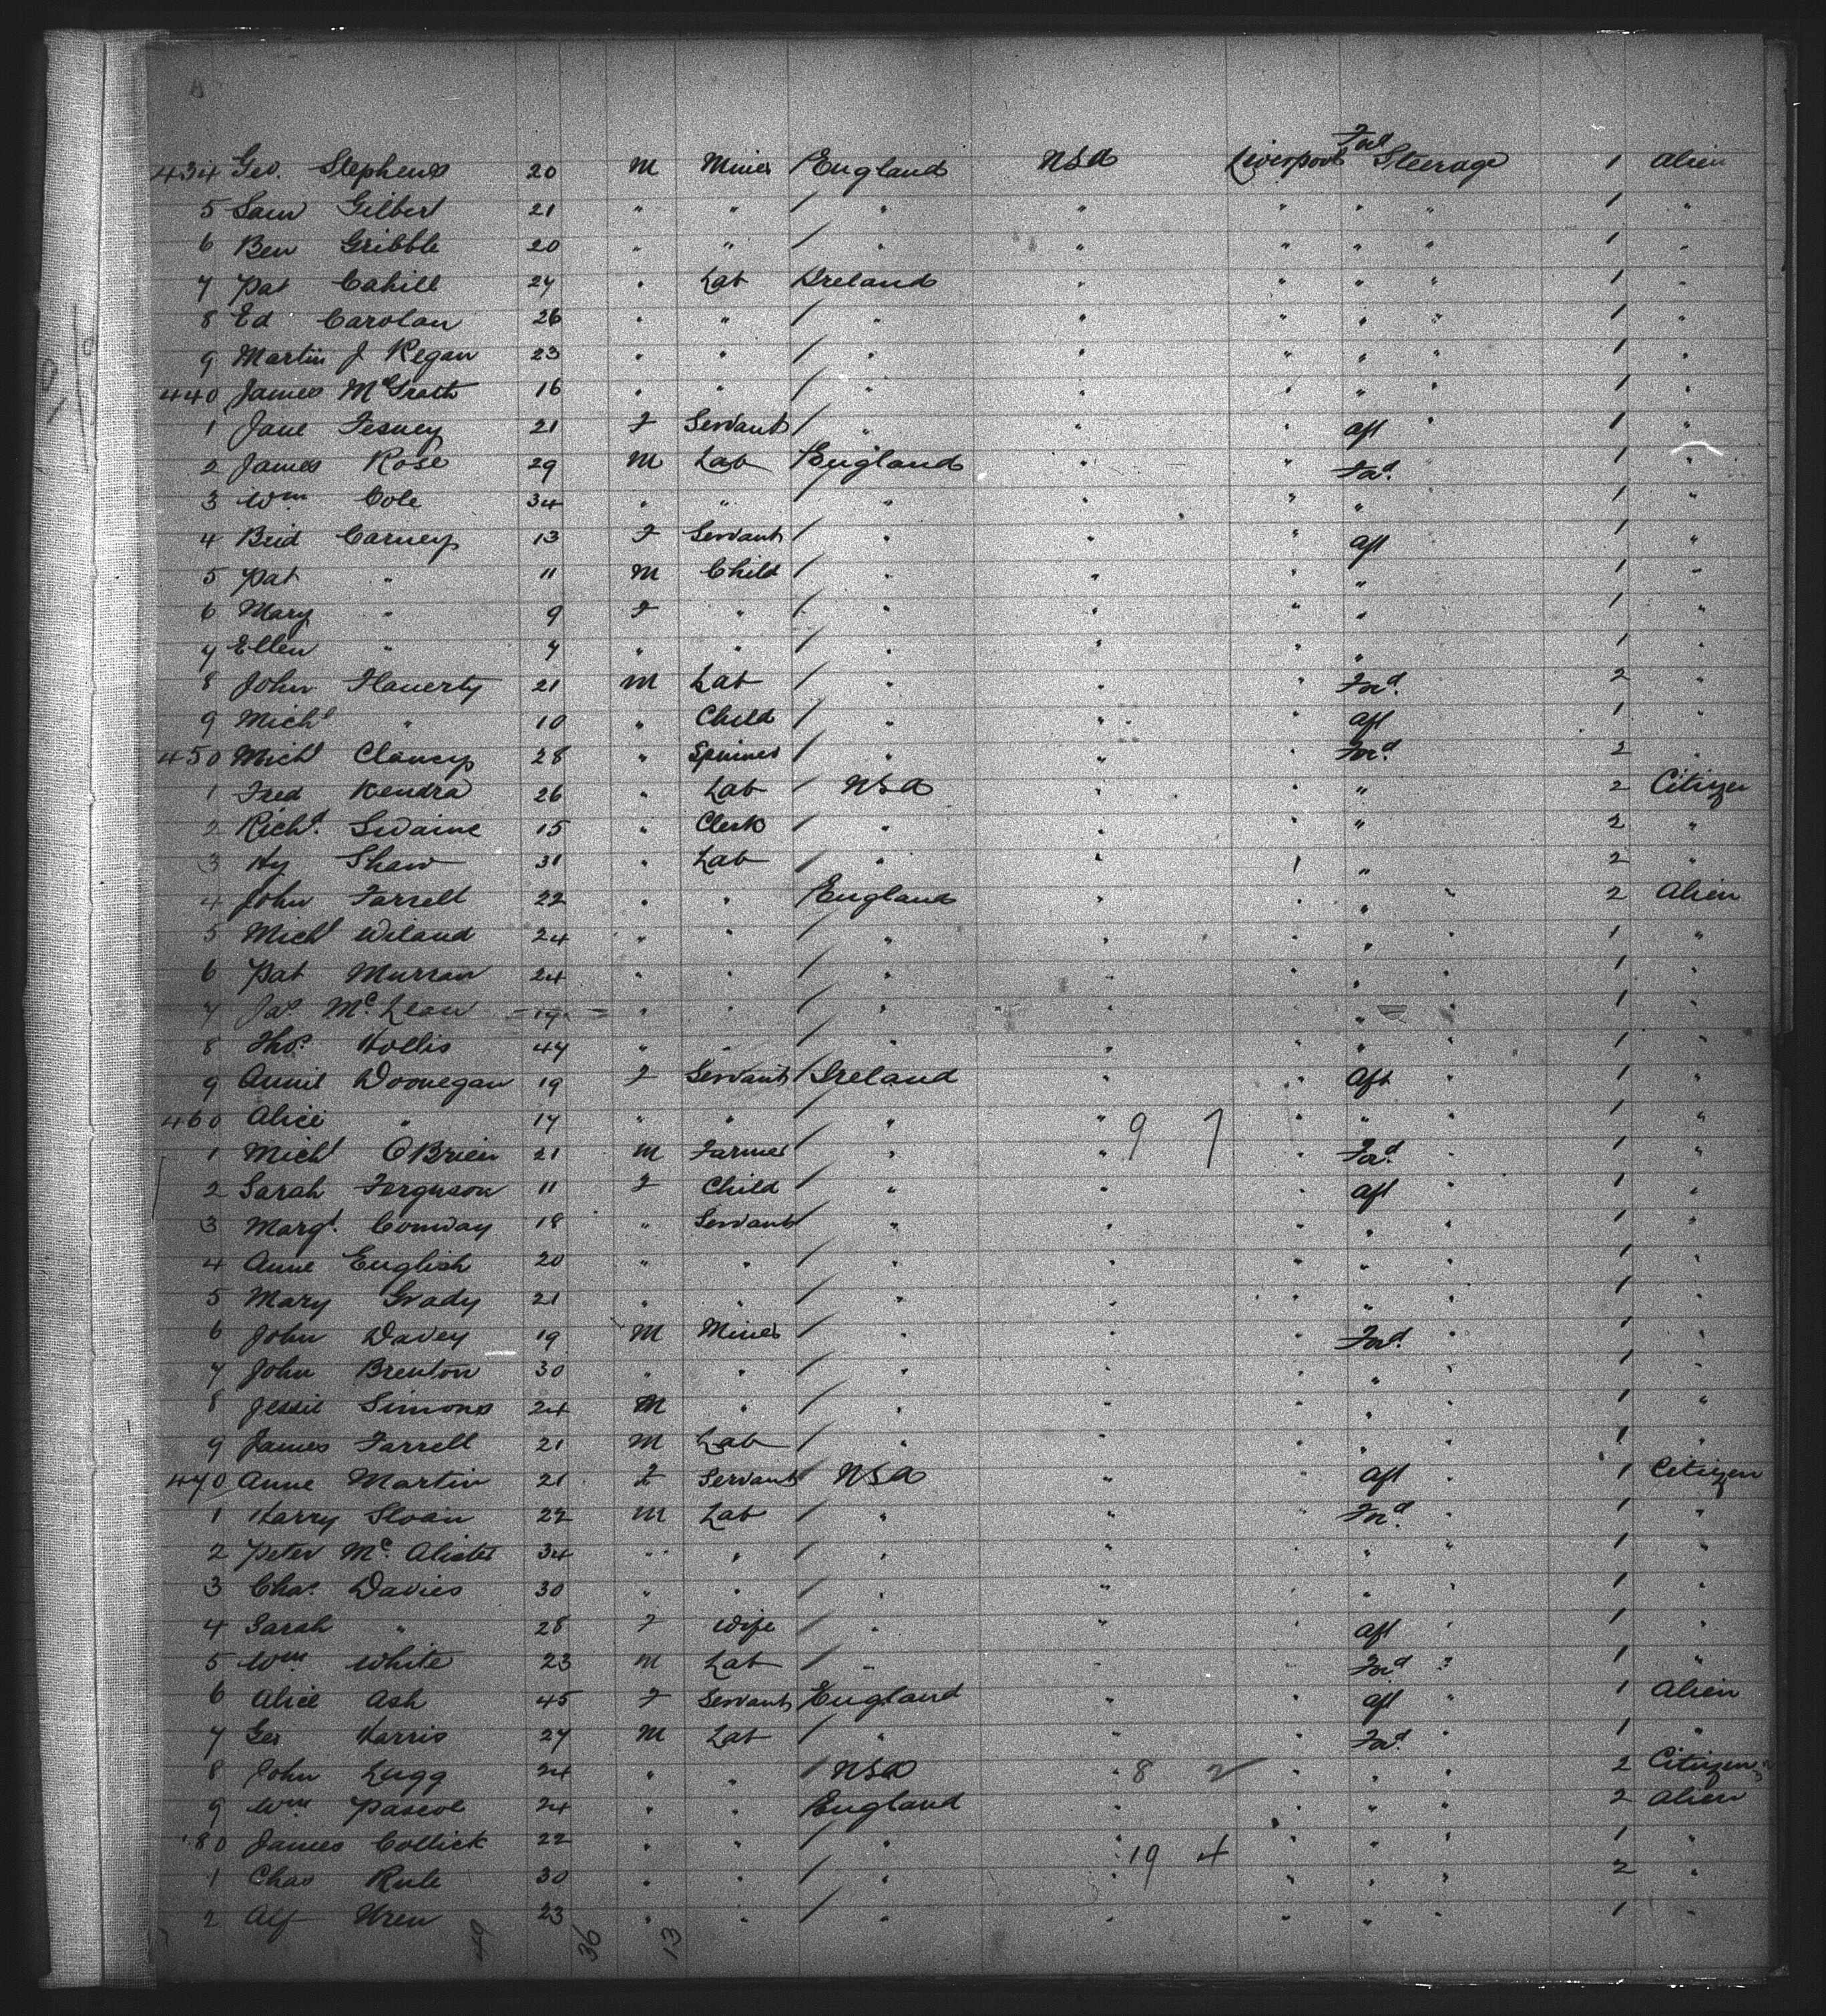 Fwd
434 Geo. Stephens 20 M Miner / England USA Liverpool Steerage 1 Alien
5 Sam Gilbert 21 " " / " " " " " 1 "
6 Ben Gribble 20 " " / " " " " " 1 "
7 Pat Cahill 24 " Lab Ireland " " " " 1 "
8 Ed Carolan 26 " " / " " " " " 1 "
9 Martin J Regan 23 " " / " " " " " 1 "
440 James McGrath 16 " " / " " " " " 1 "
1 Jane Fesney 21 F Servant / " " " aft " 1 "
2 James Rose 29 M Lab / England " " Fwd. 1 "
3 Wm Cole 34 " " / " " " " 1 "
4 Brid Carney 13 F Servant / " " " aft " 1 "
5 Pat " 11 M Child / " " " " 1 "
6 Mary " 9 F " / " " " " 1 "
7 Ellen " 7 " " / " " " " 1 "
8 John Flaverty 21 M Lab / " " " Fwd. 2 "
9 Michl " 10 " Child / " " " aft 1 "
450 Michl Clancy 28 " Spinner / " " " Fwd. 2 "
1 Fred Kendra 26 " Lab / USA " " " 2 Citizen
2 Richd. Swaine 15 " Clerk / " " " " 2 "
3 Hy Shaw 31 " Lab / " " " " 2 "
4 John Farrell 22 " " / England " " " " 2 Alien
5 Michl Wiland 24 " " / " " " " " 1 "
6 Pat Murran 24 " " / " " " " " 1 "
7 Jas McLean 19 " " / " " " 1 "
8 Thos. Hollis 47 " " / " " " " " 1 "
9 Annie Doonegan 19 F Servant / Ireland " " Aft " 1 "
460 Alice " 17 " " / " " 9 7 " " " 1 "
1 Michl OBrien 21 M Farmer / " " " Fwd. " 1 "
2 Sarah Ferguson 11 F Child / " " " aft " 1 "
3 Margt. Conway 18 " Servant / " " " " " 1 "
4 Anne English 20 " " / " " " " " 1 "
5 Mary Grady 21 " " / " " " " " 1 "
6 John Davey 19 M Miner / " " " Fwd. " 1 "
7 John Brenton 30 " " / " " " " " 1 "
8 Jessie Simons 24 M " / " " " " " 1 "
9 James Farrell 21 M Lab / " " " " " 1 "
470 Anne Martin 21 F Servant / USA " " aft " 1 Citizen
1 Harry Sloan 22 M Lab / " " " Fwd. " 1 "
2 Peter Mc. Alister 34 " " / " " " " " 1 "
3 Chas. Davies 30 " " / " " " " " 1 "
4 Sarah " 28 F Wife / " " " aft " 1 "
5 Wm White 23 M Lab / " " " Fwd " 1 "
6 Alice Ash 45 F Servant / England " " aft " 1 Alien
7 Geo Harris 27 M Lab / " " " Fwd. " 1 "
8 John Lugg 24 " " / USA " 8 2 " " " 2 Citizen
9 Wm Pascoe 24 " " / England " " " " 2 Alien
80 James Collick 22 " " / " " 19 4 " " " 1 "
1 Chas Rule 30 " " / " " " " " 2 "
2 Alf Uren 23 " " / " " " " " 1 "
49 36 13